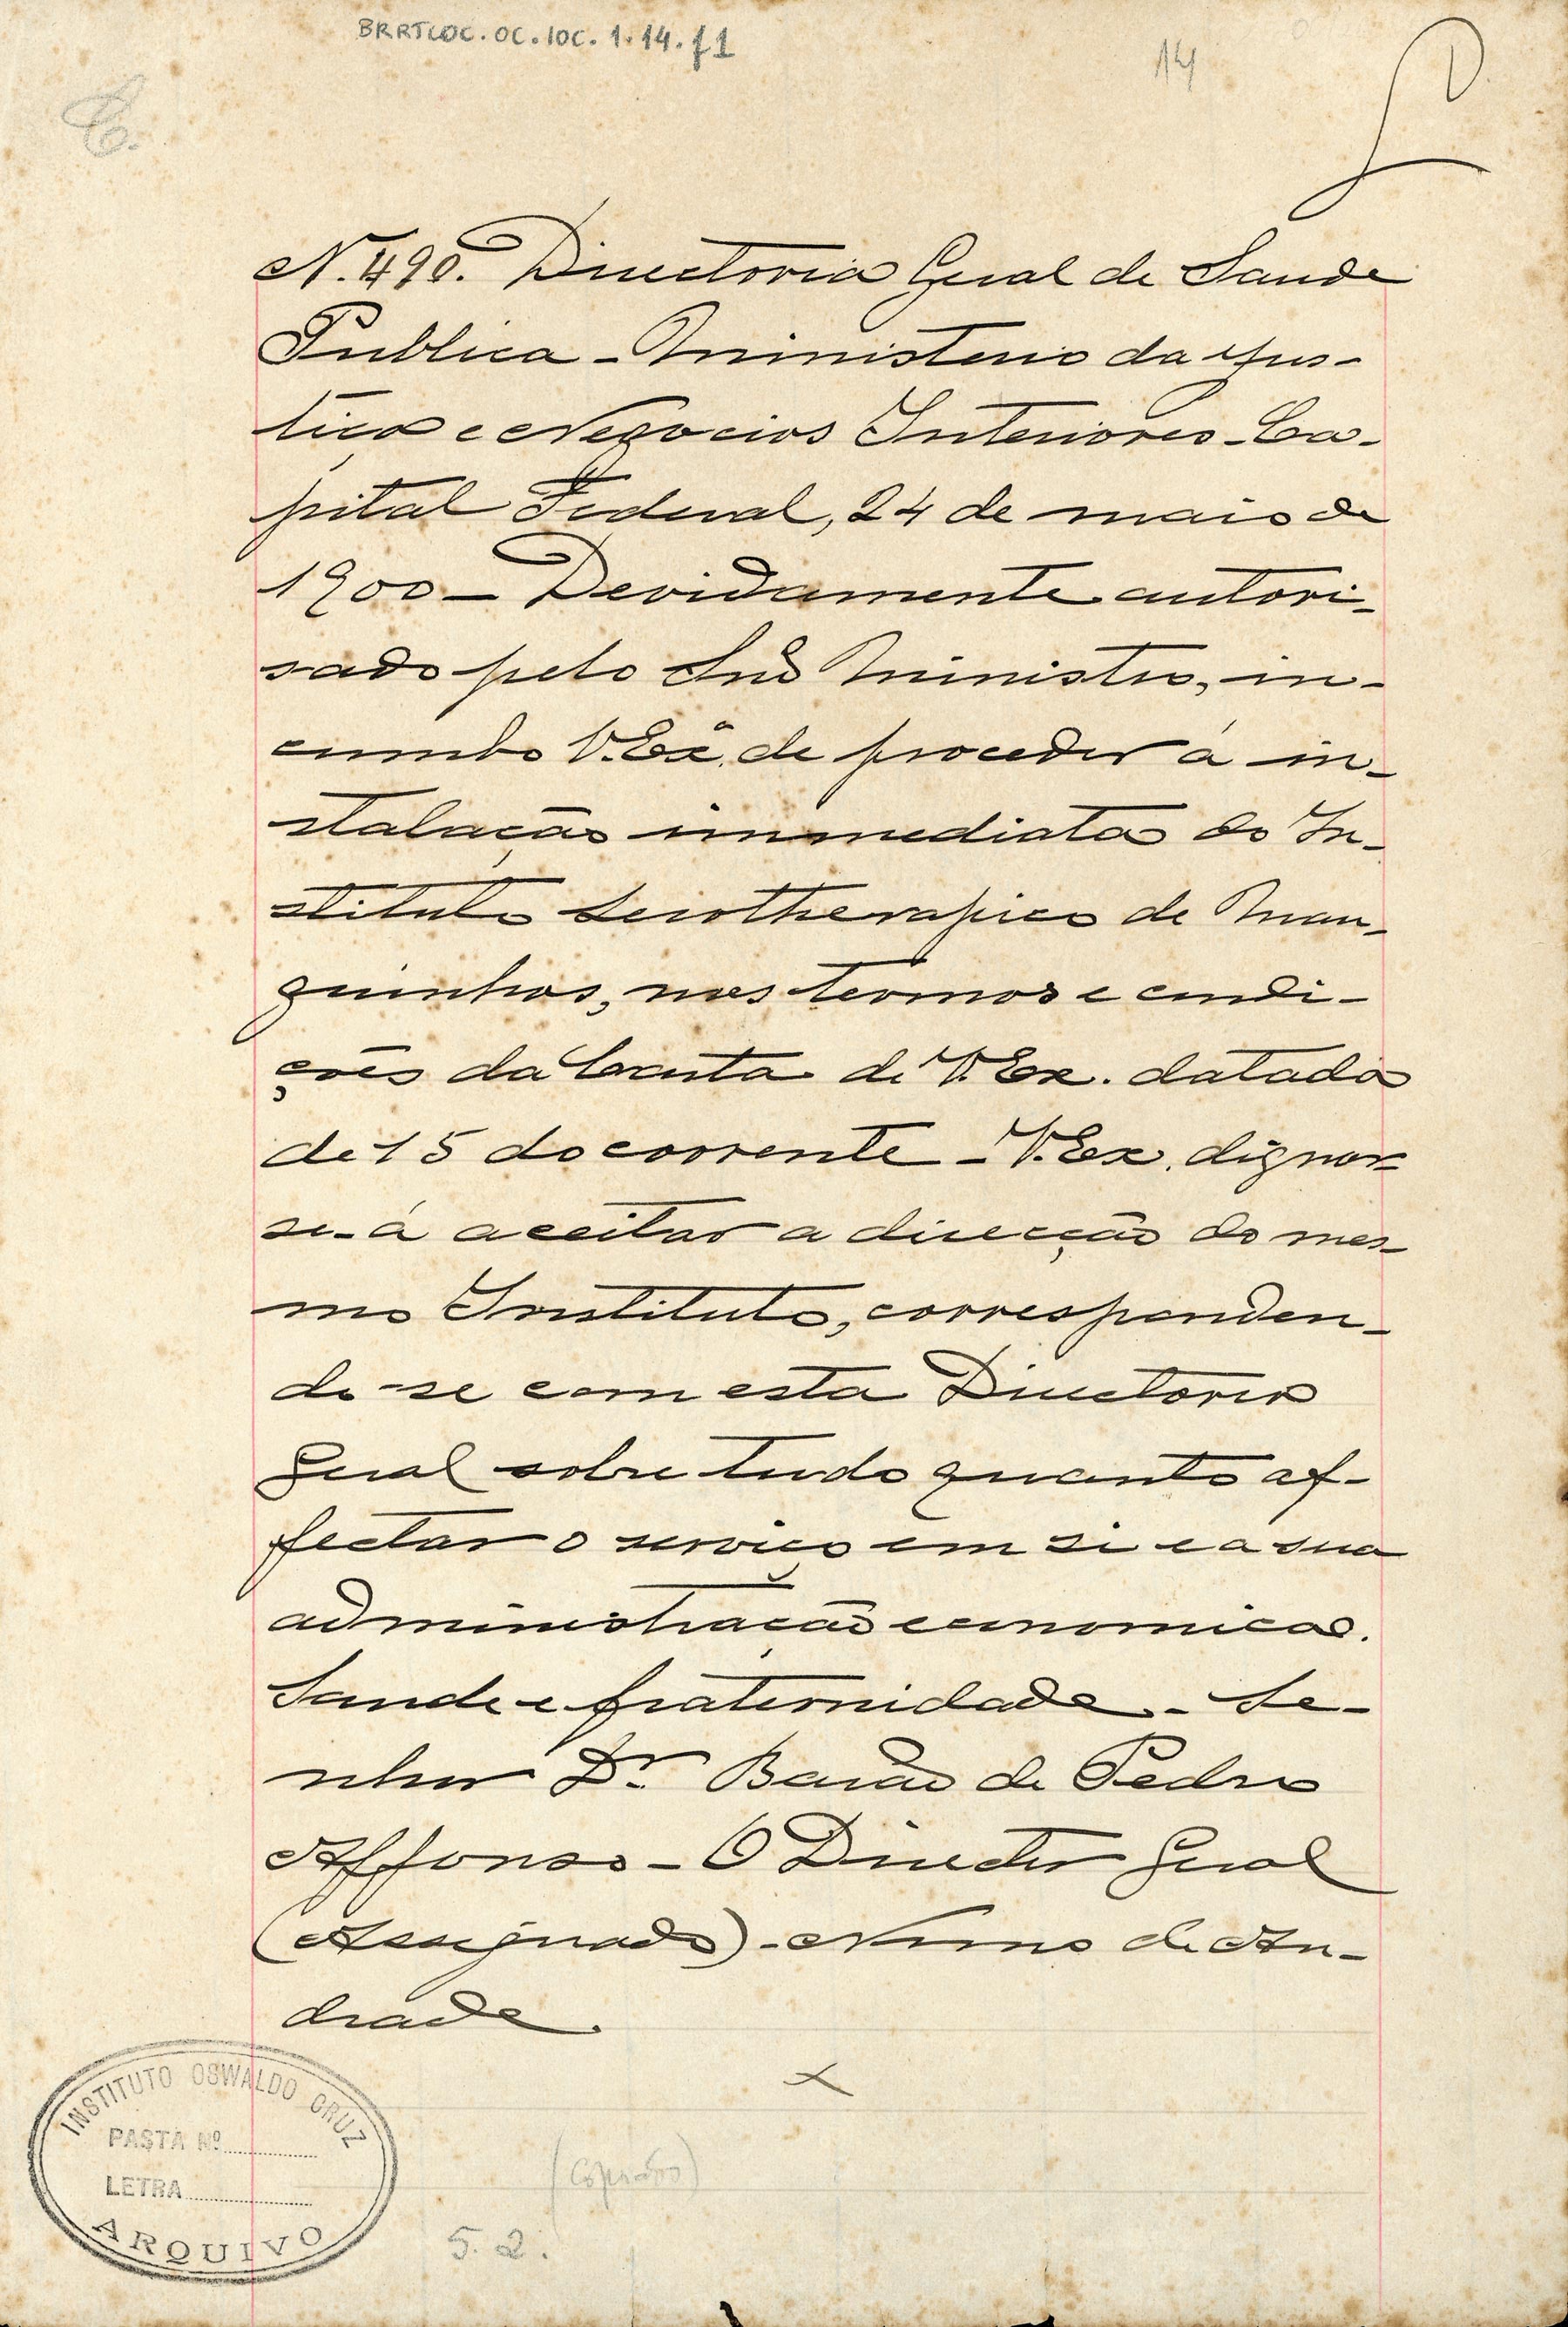 BRRJCOC.OC.IOC.1.14.f1
14
N. 490. Directoria Geral de Saude
Publica - Ministerio da Jus-
tiça e Negocios Interiores - Ca-
pital Federal, 24 de maio de
1900 - Devidamente autori-
sado pelo Snr Ministro, in-
cumbo V. Exª. de proceder á in-
stalação immediata do In-
stituto Serotherapico de Man-
guinhos, nos termos e condi-
ções da Carta de V. Ex. datada
de 15 do corrente - V. Ex. dignar-
se-á aceitar a direcção do mes-
mo Instituto, corresponden-
do-se com esta Directoria
Geral sobre tudo quanto af-
fectar o serviço em si e a sua
administração economica.
Saude e fraternidade - Se-
nhor Dr. Barão de Pedro
Affonso - O Director Geral
(Assignado) - Nuno de An-
drade.
INSTITUTO OSWALDO CRUZ
PASTA Nº
LETRA
ARQUIVO
(Copiado)
5. 2.